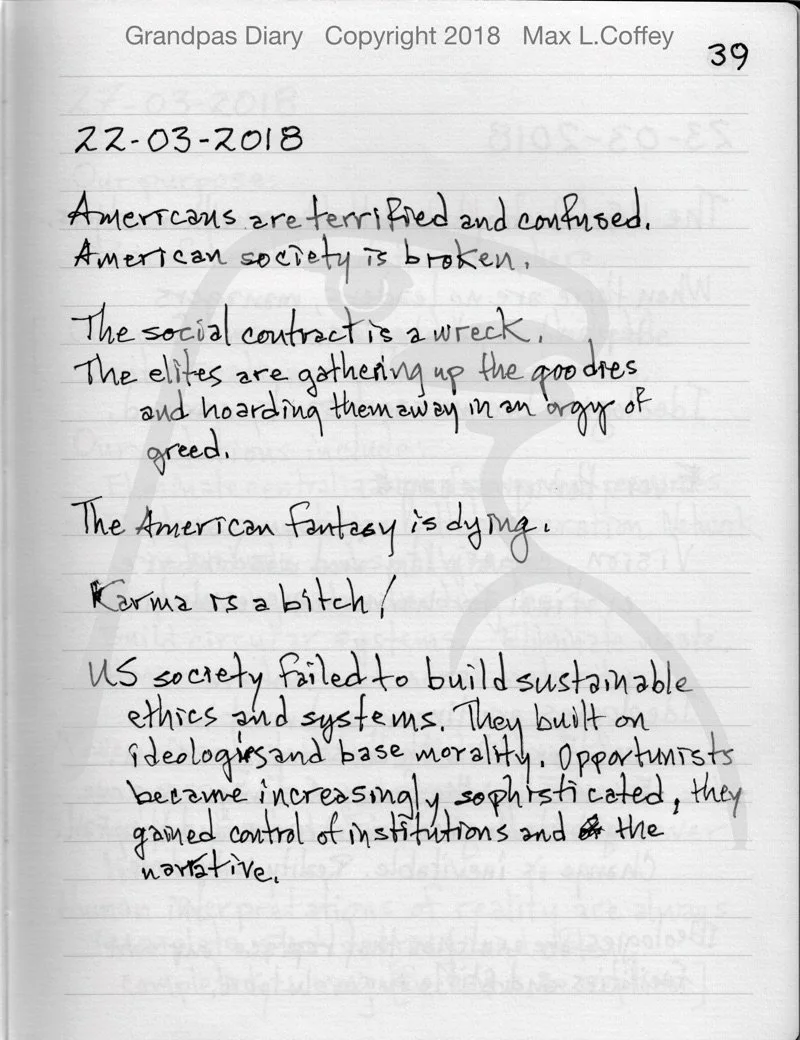 Grandpas Diary Copyright 2018 Max L.Coffey
39
22-03-2018
Americans are terrified and confused.
American society is broken.
The social contract is a wreck.
The elites are gathering up the goodies
and hoarding them away in an orgy of
greed.
The American fantasy is dying.
Karma is a bitch!
US society failed to build sustainable
ethics and systems. They built on
ideologies and base morality. Opportunists
became increasingly sophisticated, they
gained control of institutions and the
narrative.